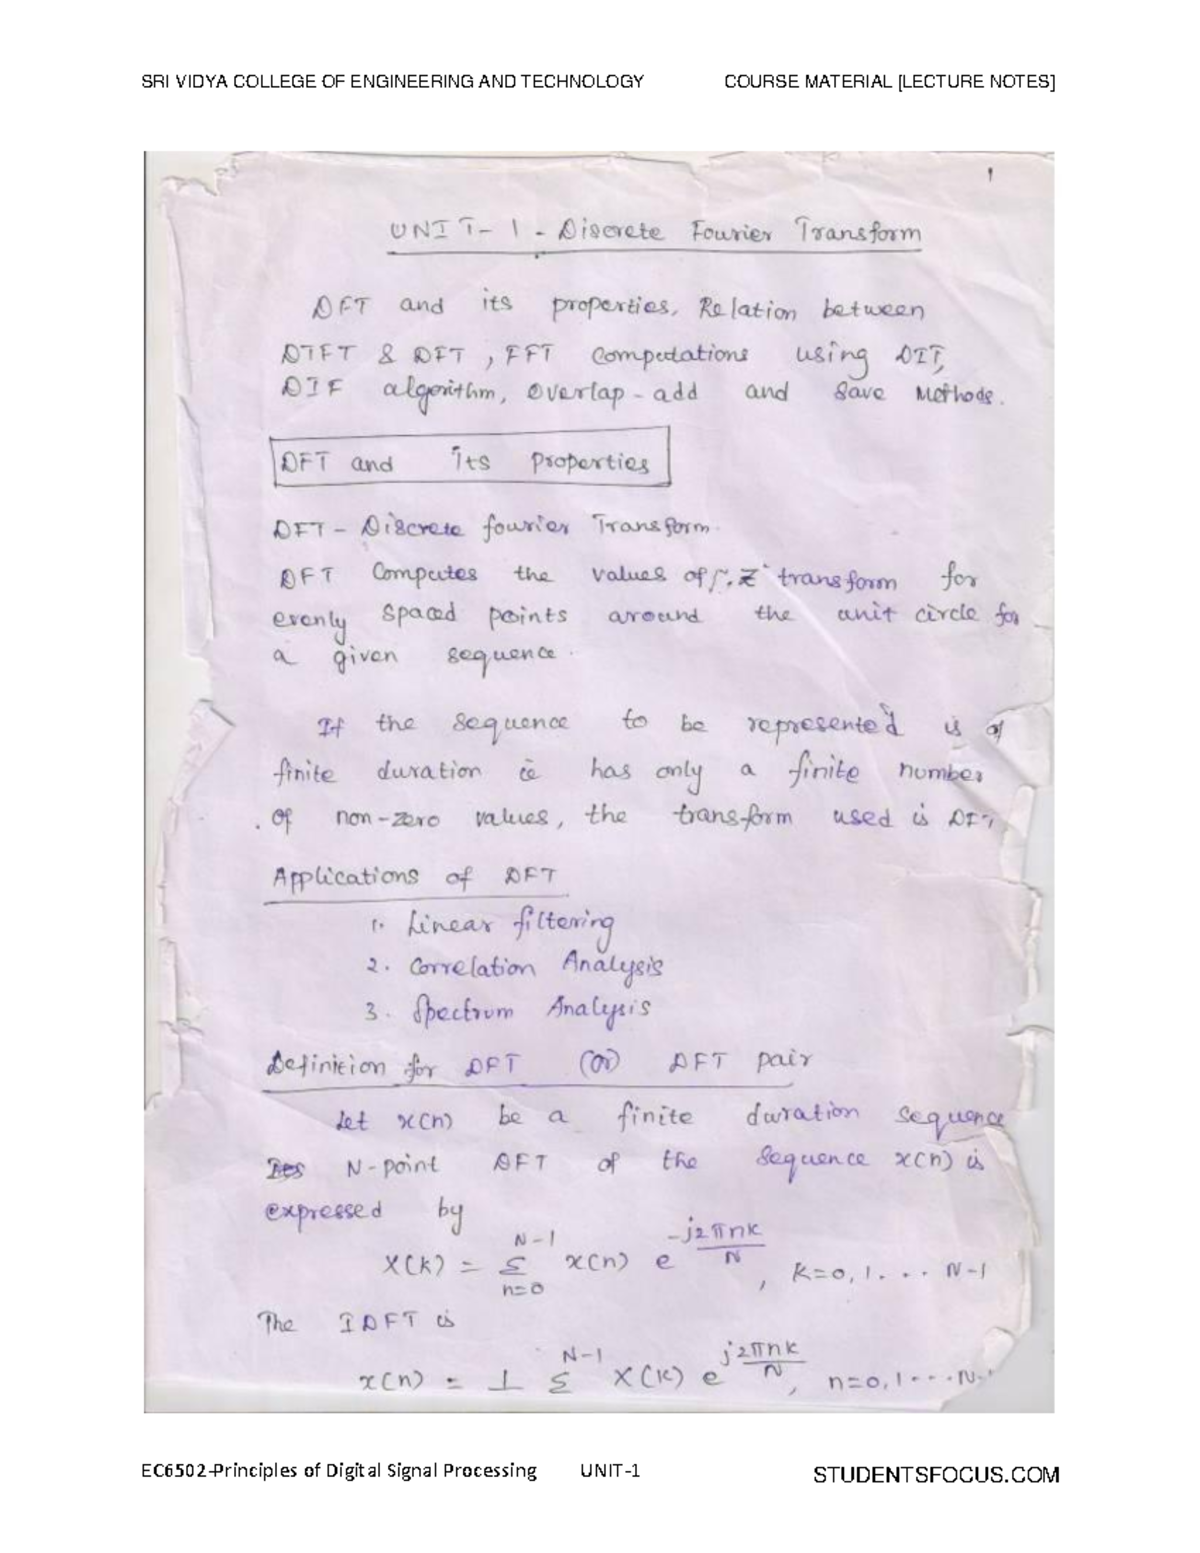 SRI VIDYA COLLEGE OF ENGINEERING AND TECHNOLOGY COURSE MATERIAL [LECTURE NOTES]
1
UNIT-1 - Discrete Fourier Transform
DFT and its properties, Relation between
DTFT & DFT, FFT Computations using DIT,
DIF algorithm, Overlap-add and Save Methods.
DFT and Its Properties
DFT - Discrete fourier Transform.
DFT Computes the values of Z transform for
evenly Spaced points around the unit circle for
a given sequence.
If the sequence to be represented is of
finite duration ie has only a finite number
of non-zero values, the transform used is DFT
Applications of DFT
1. Linear filtering
2. Correlation Analysis
3. Spectrum Analysis
Definition for DFT (or) DFT pair
Let x(n) be a finite duration sequence
N-point DFT of the Sequence x(n) is
expressed by
X(k) = Σ_{n=0}^{N-1} x(n) e^{-j2πnk/N}, K=0,1... N-1
The IDFT is
x(n) = 1 Σ^{N-1} X(K) e^{j2πnk/N}, n=0,1...N-1
EC6502-Principles of Digital Signal Processing UNIT-1 STUDENTSFOCUS.COM